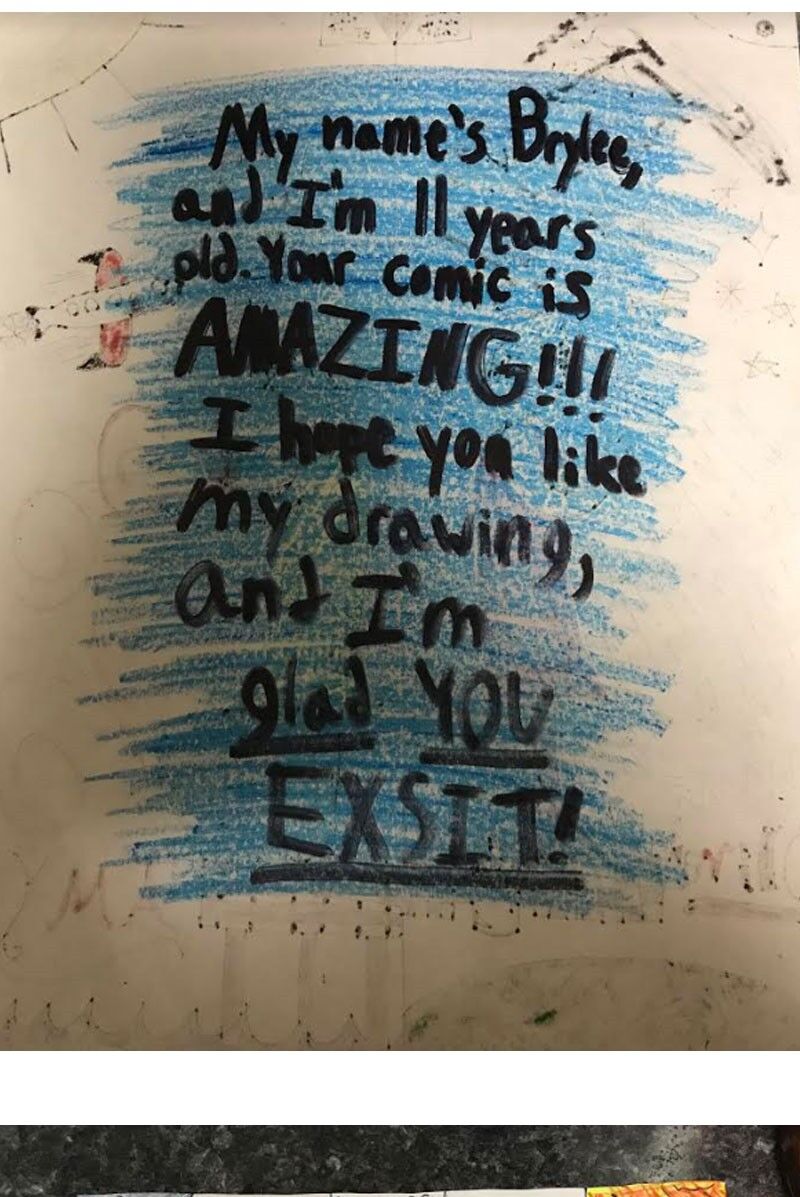 My name's Brylee,
and I'm 11 years
old. Your comic is
AMAZING!!!
I hope you like
my drawing,
and I'm
glad YOU
EXSIT!